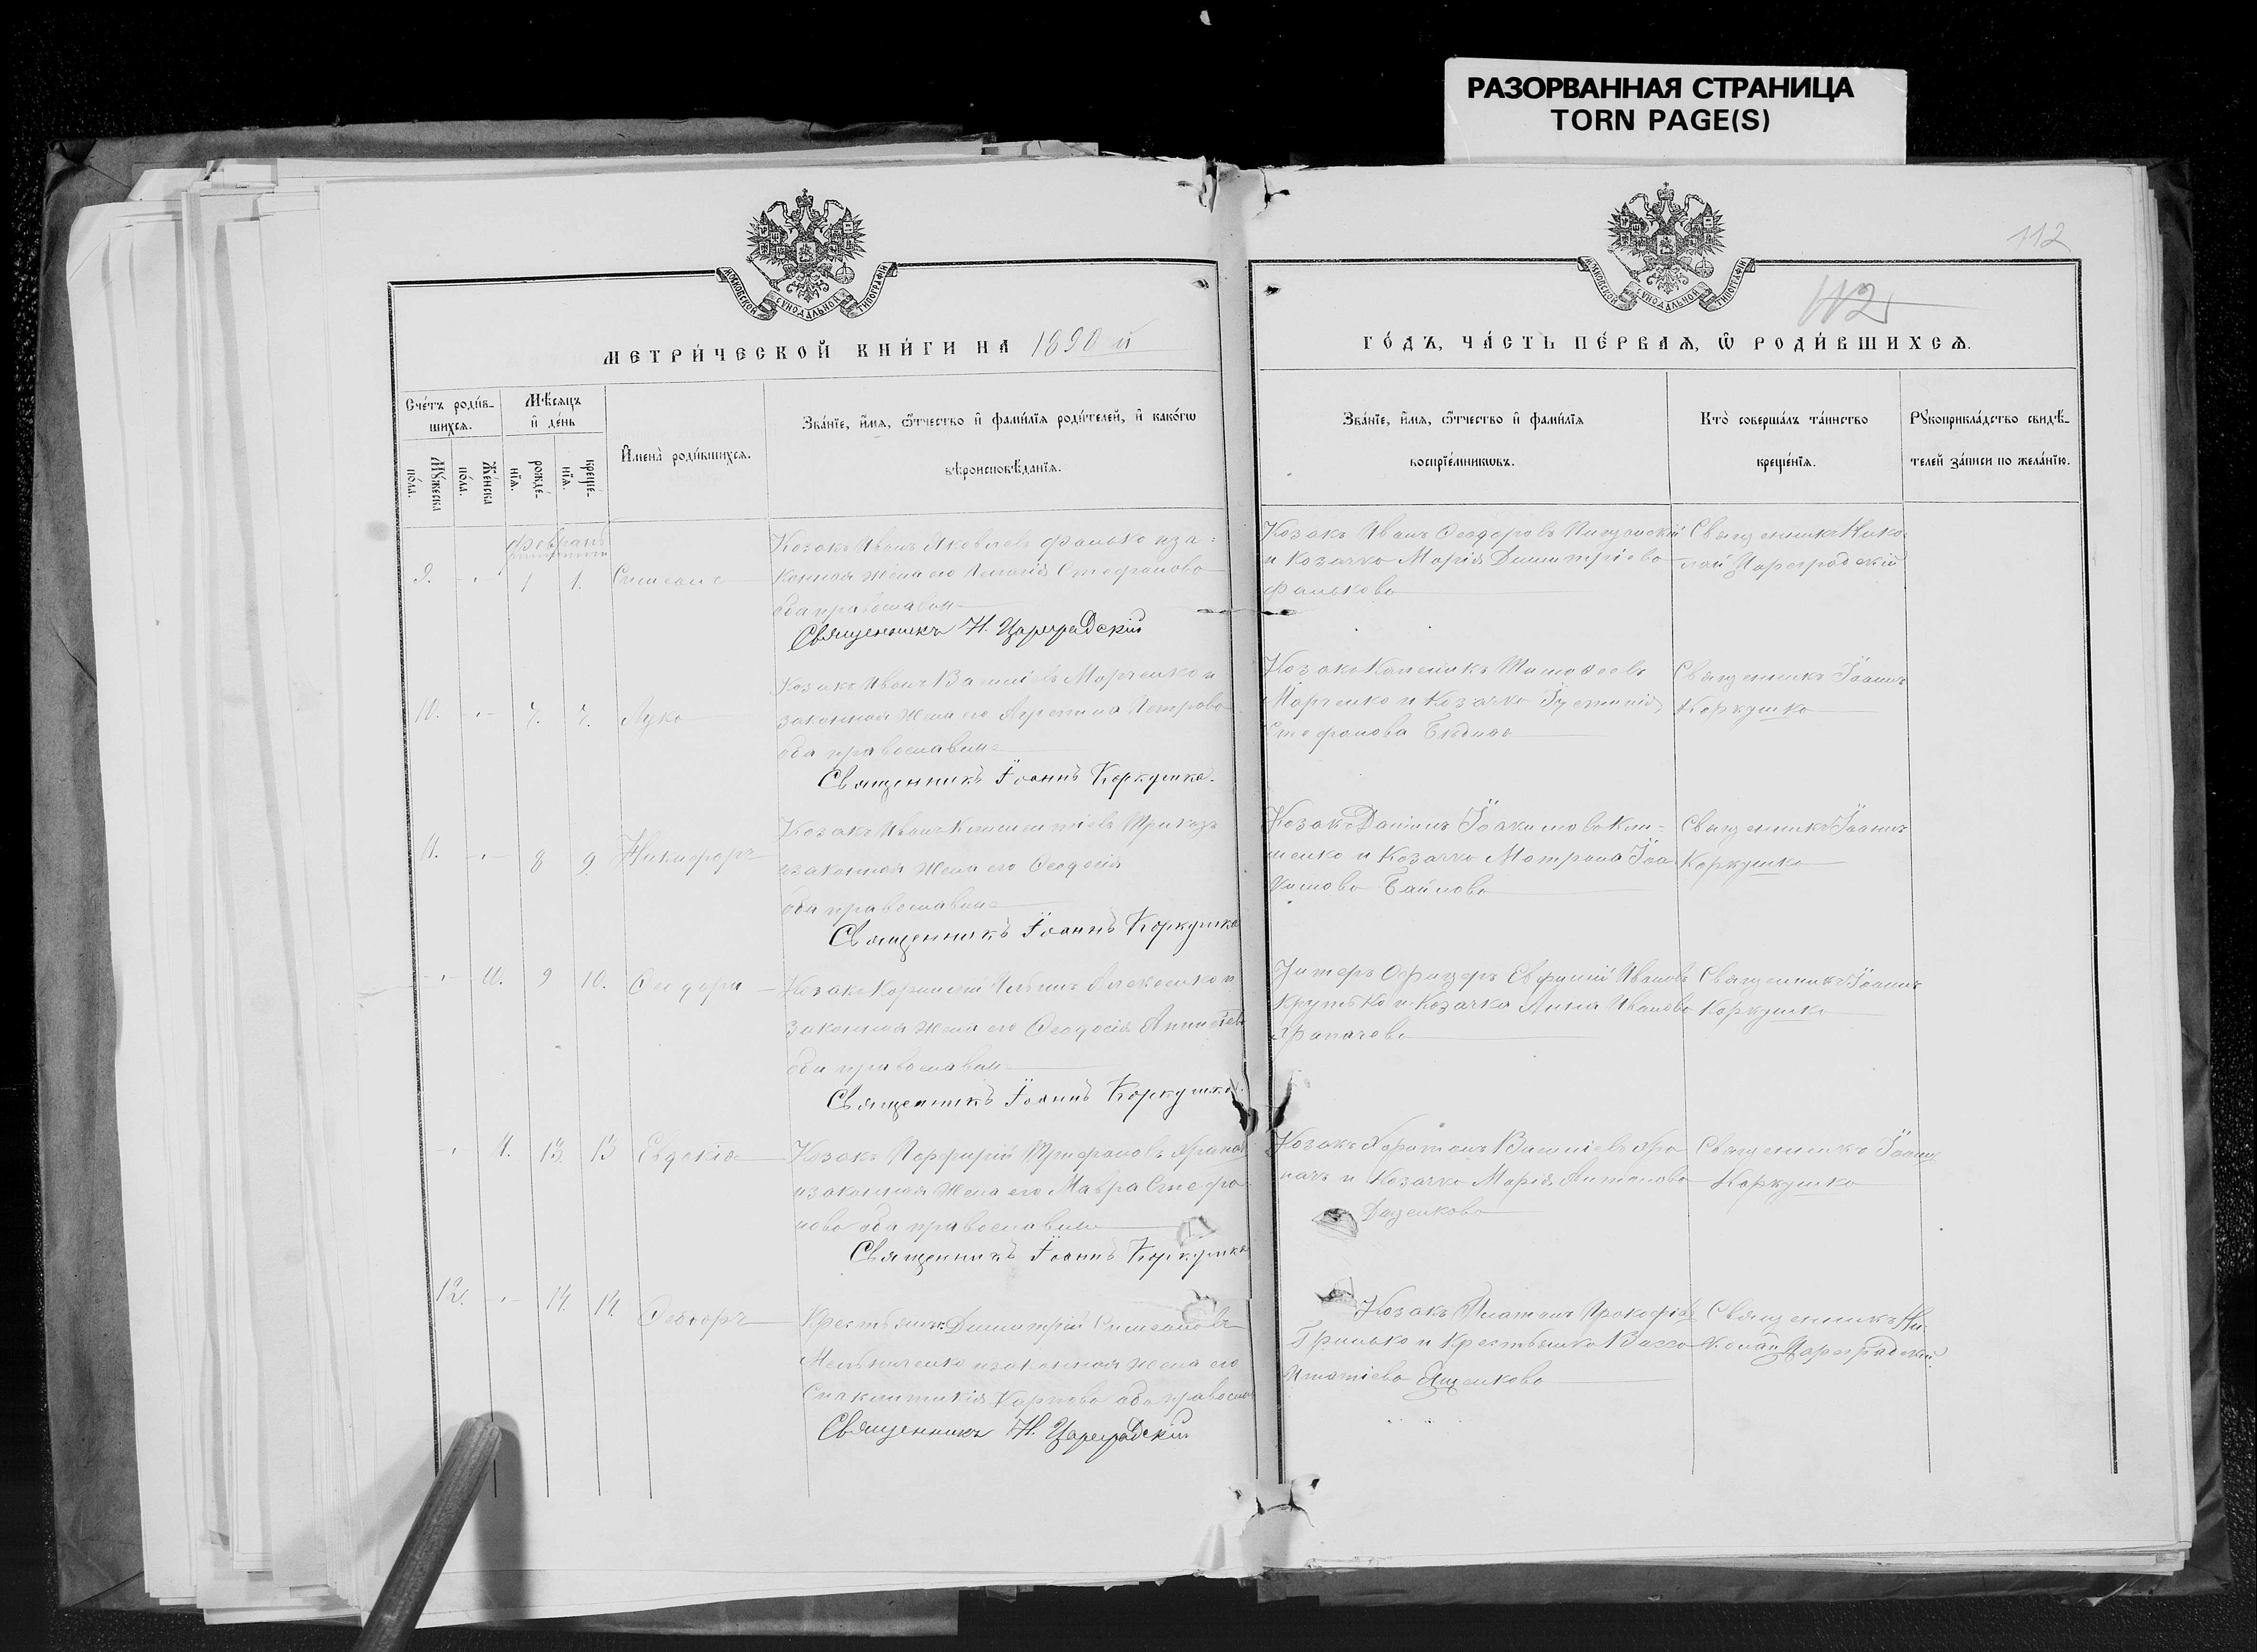 РАЗОРВАННАЯ СТРАНИЦА
TORN PAGE(S)
112
112
МОСКОВСКОЙ СѴНОДАЛЬНОЙ ТИПОГРАФІИ
МЕТРИ́ЧЕСКОЙ КНИ́ГИ НА 1890 й
Сче́тъ роди́в-
шихсѧ.
Мꙋ́жеска
по́ла.
Же́нска
по́ла.
Мѣ́сѧцъ
и҆ де́нь
рожде́-
нїѧ.
креще́-
нїѧ.
И҆мена̀ роди́вшихсѧ.
Зва́нїе, и҆́мѧ, ѻ҆́тчество и҆ фами́лїѧ роди́телей, и҆ како́гѡ
вѣроисповѣ́данїѧ.
Февраль
9. -"- 1 1. Симеонъ
Козакъ Иванъ Яковлевъ Фалько и за-
конная жена его Стефанова
оба православные
Священникъ Н. Цареградскій
10. -"- 7. 7. Лука
Козакъ Иванъ Василіевъ Марченко и
законная жена его Агрепина Петрова
оба православные
Священникъ Іоаннъ Коркушко.
11. -"- 8 9. Никифоръ
Козакъ Иванъ
и законная жена его Ѳеодосія
оба православные
Священникъ Іоаннъ Коркушко
-"- 10. 9 10. Ѳеодора
Козакъ Корнилій
законная жена его Ѳеодосія
оба православные
Священникъ Іоаннъ Коркушко.
-"- 11. 13. 13 Евдокія
Козакъ Порфирій Трифоновъ
и законная жена его Мавра Стефа-
нова оба православные
Священникъ Іоаннъ Коркушко
12. -"- 14. 14. Ѳеодоръ
Крестьянинъ Димитрій Симеоновъ
Мельниченко и законная жена его
Синклитикія Карпова оба православ
Священникъ Н. Цареградскій
МОСКОВСКОЙ СѴНОДАЛЬНОЙ ТИПОГРАФІИ
ГО́ДЪ, ЧА́СТЬ ПЕ́РВАѦ, Ѽ РОДИ́ВШИХСѦ.
Зва́нїе, и҆́мѧ, ѻ҆́тчество и҆ фами́лїѧ
воспрїе́мникѡвъ.
Кто̀ соверша́лъ та́инство
креще́нїѧ.
Рꙋкоприкла́дство свидѣ́-
телей за́писи по жела́нїю.
Козакъ Иванъ Ѳеодоровъ
и Козачка Марія Димитріева
Фалькова
Священникъ Нико-
лай Цареградскій
Козакъ Тимоѳеевъ
Марченко и Козачка Іустинія
Стефанова
Священникъ Іоаннъ
Коркушко
Козакъ Даніилъ Іоакимовъ Кли-
менко и Козачка Матрона Іоа-
кимова
Священникъ Іоаннъ
Коркушко
Унтеръ Офицеръ Евфимій Ивановъ
Крутько и Козачка Анна Иванова
Храпачева
Священникъ Іоаннъ
Коркушко
Козакъ Харитонъ Василіевъ Хра-
пачъ и Козачка Марія Антонова
Даценкова
Священникъ Іоаннъ
Коркушко
Козакъ Платонъ Прокофіевъ
Гринько и Крестьянка Васса
Игнатіева Яценкова
Священникъ Ни-
колай Цареградскій